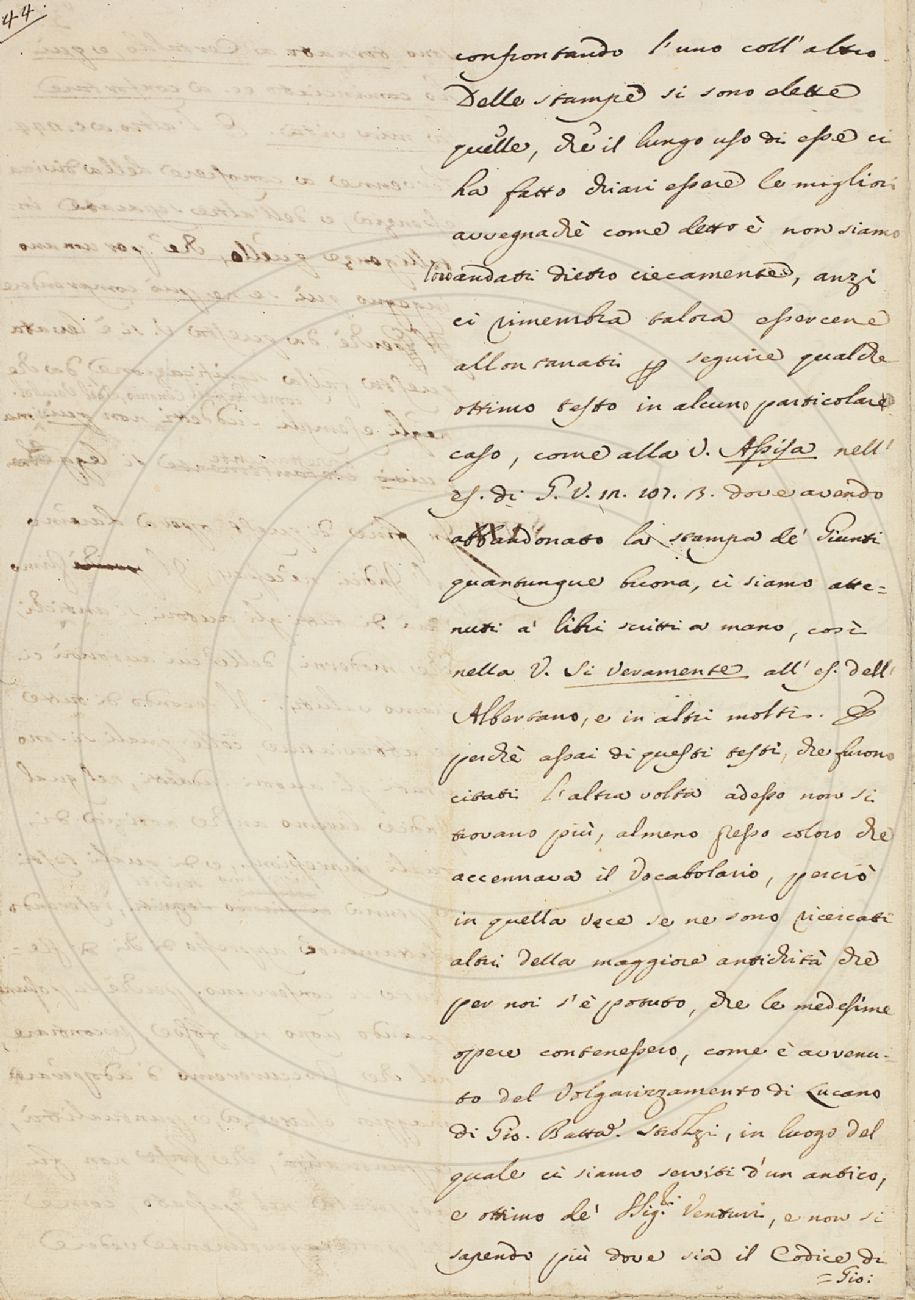 44.
confrontando l'uno coll'altro.
Delle stampe si sono elette
quelle, che il lungo uso di esse ci
ha fatto chiari essere le migliori
avvegnachè come detto è non siamo
loro andatti dietro ciecamente, anzi
ci rimembra talora essercene
allontanatti per seguire qualche
ottimo testo in alcuno particolare
caso, come alla V. Assisa nell'
es. di G. V. 12. 107. 13. dove avendo
abbandonato la stampa de' Giunti
quantunque buona, ci siamo atte=
nuti a' libri scritti a mano, così
nella V. Si veramente all'es. dell'
Albertano, e in altri molti. E
perchè assai di questi testi, che furono
citati l'altra volta adesso non si
trovano più, almeno presso coloro che
accennava il Vocabolario, perciò
in quella vece se ne sono ricercati
altri della maggiore antichità che
per noi s'è potuto, che le medesime
opere contenessero, come è avvenu-
to del Volgarizzamento di Lucano
di Gio. Batta. Strozzi, in luogo del
quale ci siamo serviti d'un antico,
e ottimo de' SSig.ri Venturi, e non si
sapendo più dove sia il Codice di
=Gio: